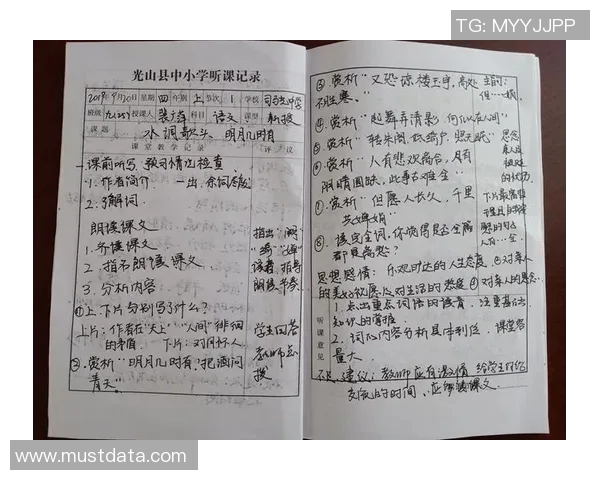 TG: MYYJJPP
光山县中小学听课记录
2019年9月20日 星期 四 年级 上 节次 1 学校
班级 九(25) 授课人 科目 语文 课型 新授
课题 水调歌头 明月几时有
课堂教学记录 评议
一课前听写、预习情况检查
1. 作者简介
2. 了解词
朗读课文
1. 齐读课文 指出“阙”
2. 指名朗读课文 读音,指导
3. 分析内容 朗读、节奏
①上、下片分别写了什么?
上片:作者在“天上”“人间”徘徊 学生回答
的矛盾 下片:对月怀人 教师点
②. 赏析“明月几时有,把酒问 拨
青天”
③. 赏析“又恐琼楼玉宇,高处
不胜寒。”
④. 赏析“起舞弄清影,何似在人间”
⑤. 赏析“转朱阁,低绮户,照无眠”
⑥. 赏析“人有悲欢离合,月有
阴晴圆缺,此事古难全”
⑦. 赏析“但愿人长久,千里
共婵娟”
⑧. 读完全词,你觉得是否全篇
都是离愁?
思想感情: 乐观旷达的人生态度 ②对亲人
的美好祝愿 对生活的热爱 ④对亲人的思念.
听课意见
1. 点出重点词语的读音 注重基础
知识的掌握
2. 词的内容分析具体到位. 课堂容
量大.
建议:教师应有激情 给学生
交流的时间、应 课文.
www.mustdata.com